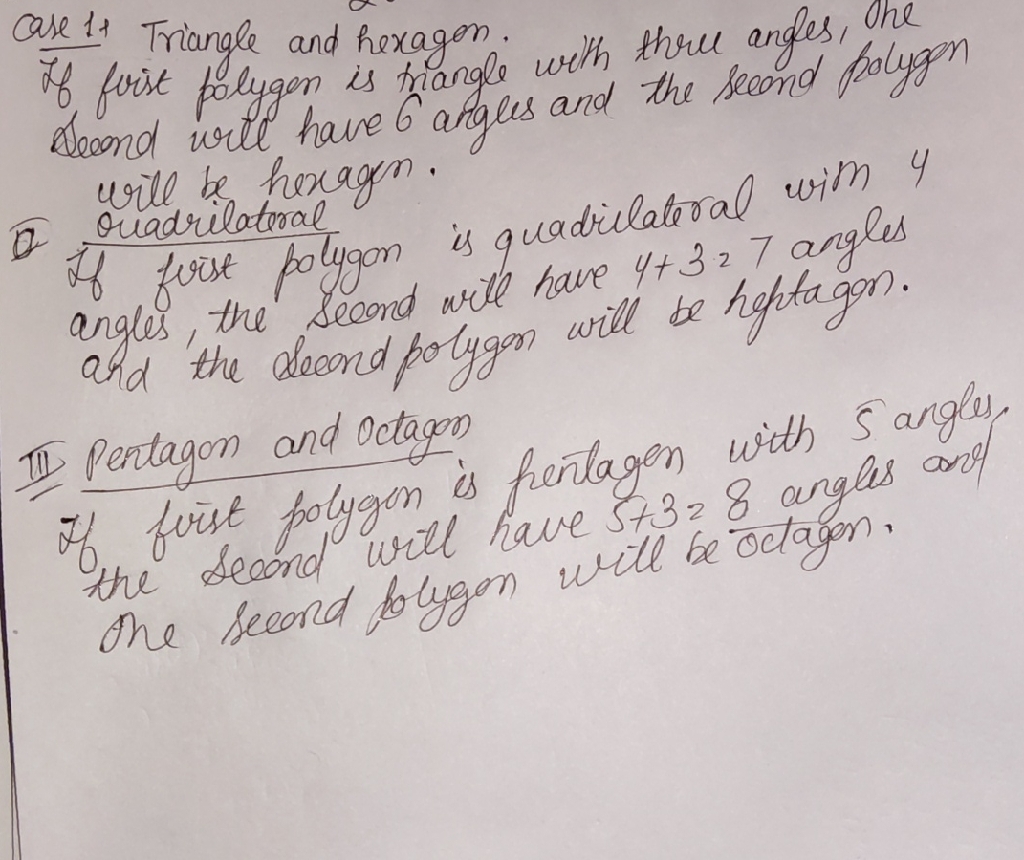 Case 1: Triangle and hexagon.
If first polygon is triangle with three angles, the
second will have 6 angles and the second polygon
will be hexagon.
Quadrilateral
If first polygon is quadrilateral with 4
angles, the second will have 4+3=7 angles
and the second polygon will be heptagon.
III Pentagon and Octagon
If first polygon is pentagon with 5 angles,
the second will have 5+3=8 angles and
the second polygon will be octagon.